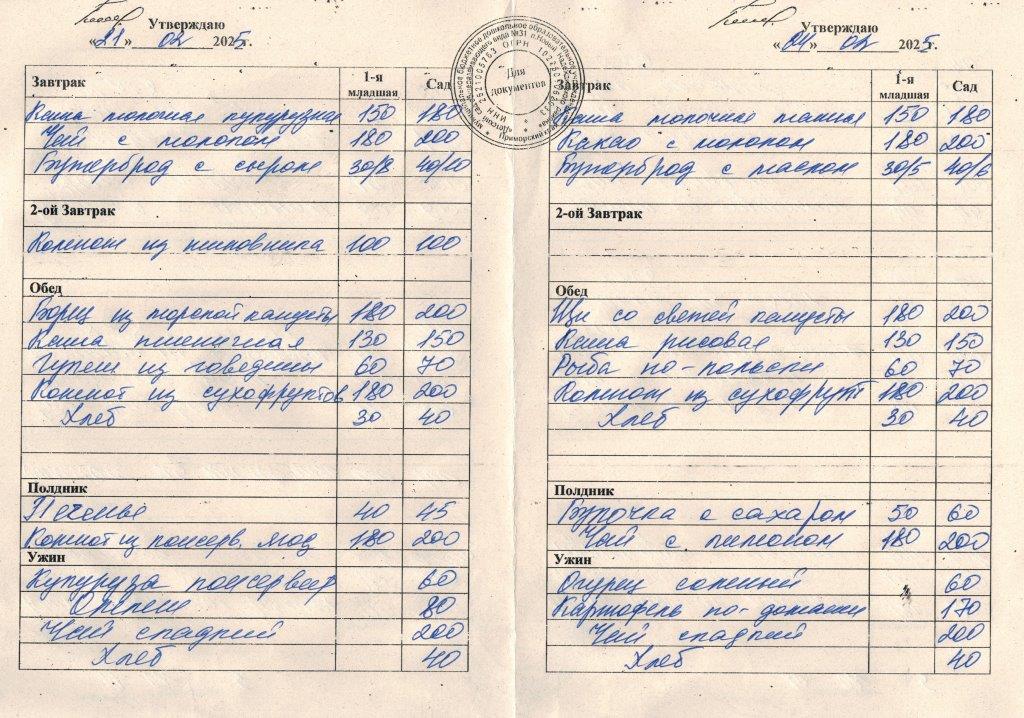 Утверждаю
«21» 02 2025г.
Завтрак 1-я младшая Сад
Каша молочная кукурузная 150 180
Чай с молоком 180 200
Бутерброд с сыром 30/8 40/10
2-ой Завтрак
Компот из шиповника 100 100
Обед
Борщ из морской капусты 180 200
Каша пшеничная 130 150
Гуляш из говядины 60 70
Компот из сухофруктов 180 200
Хлеб 30 40
Полдник
Печенье 40 45
Компот из консерв. ягод 180 200
Ужин
Кукуруза консервир 60
Омлет 80
Чай сладкий 200
Хлеб 40
Для документов
Утверждаю
«04» 02 2025г.
Завтрак 1-я младшая Сад
Каша молочная манная 150 180
Какао с молоком 180 200
Бутерброд с маслом 30/5 40/6
2-ой Завтрак
Обед
Щи со свежей капусты 180 200
Каша рисовая 130 150
Рыба по-польски 60 70
Компот из сухофрукт 180 200
Хлеб 30 40
Полдник
Булочка с сахаром 50 60
Чай с лимоном 180 200
Ужин
Огурец соленый 60
Картофель по-домашн 170
Чай сладкий 200
Хлеб 40